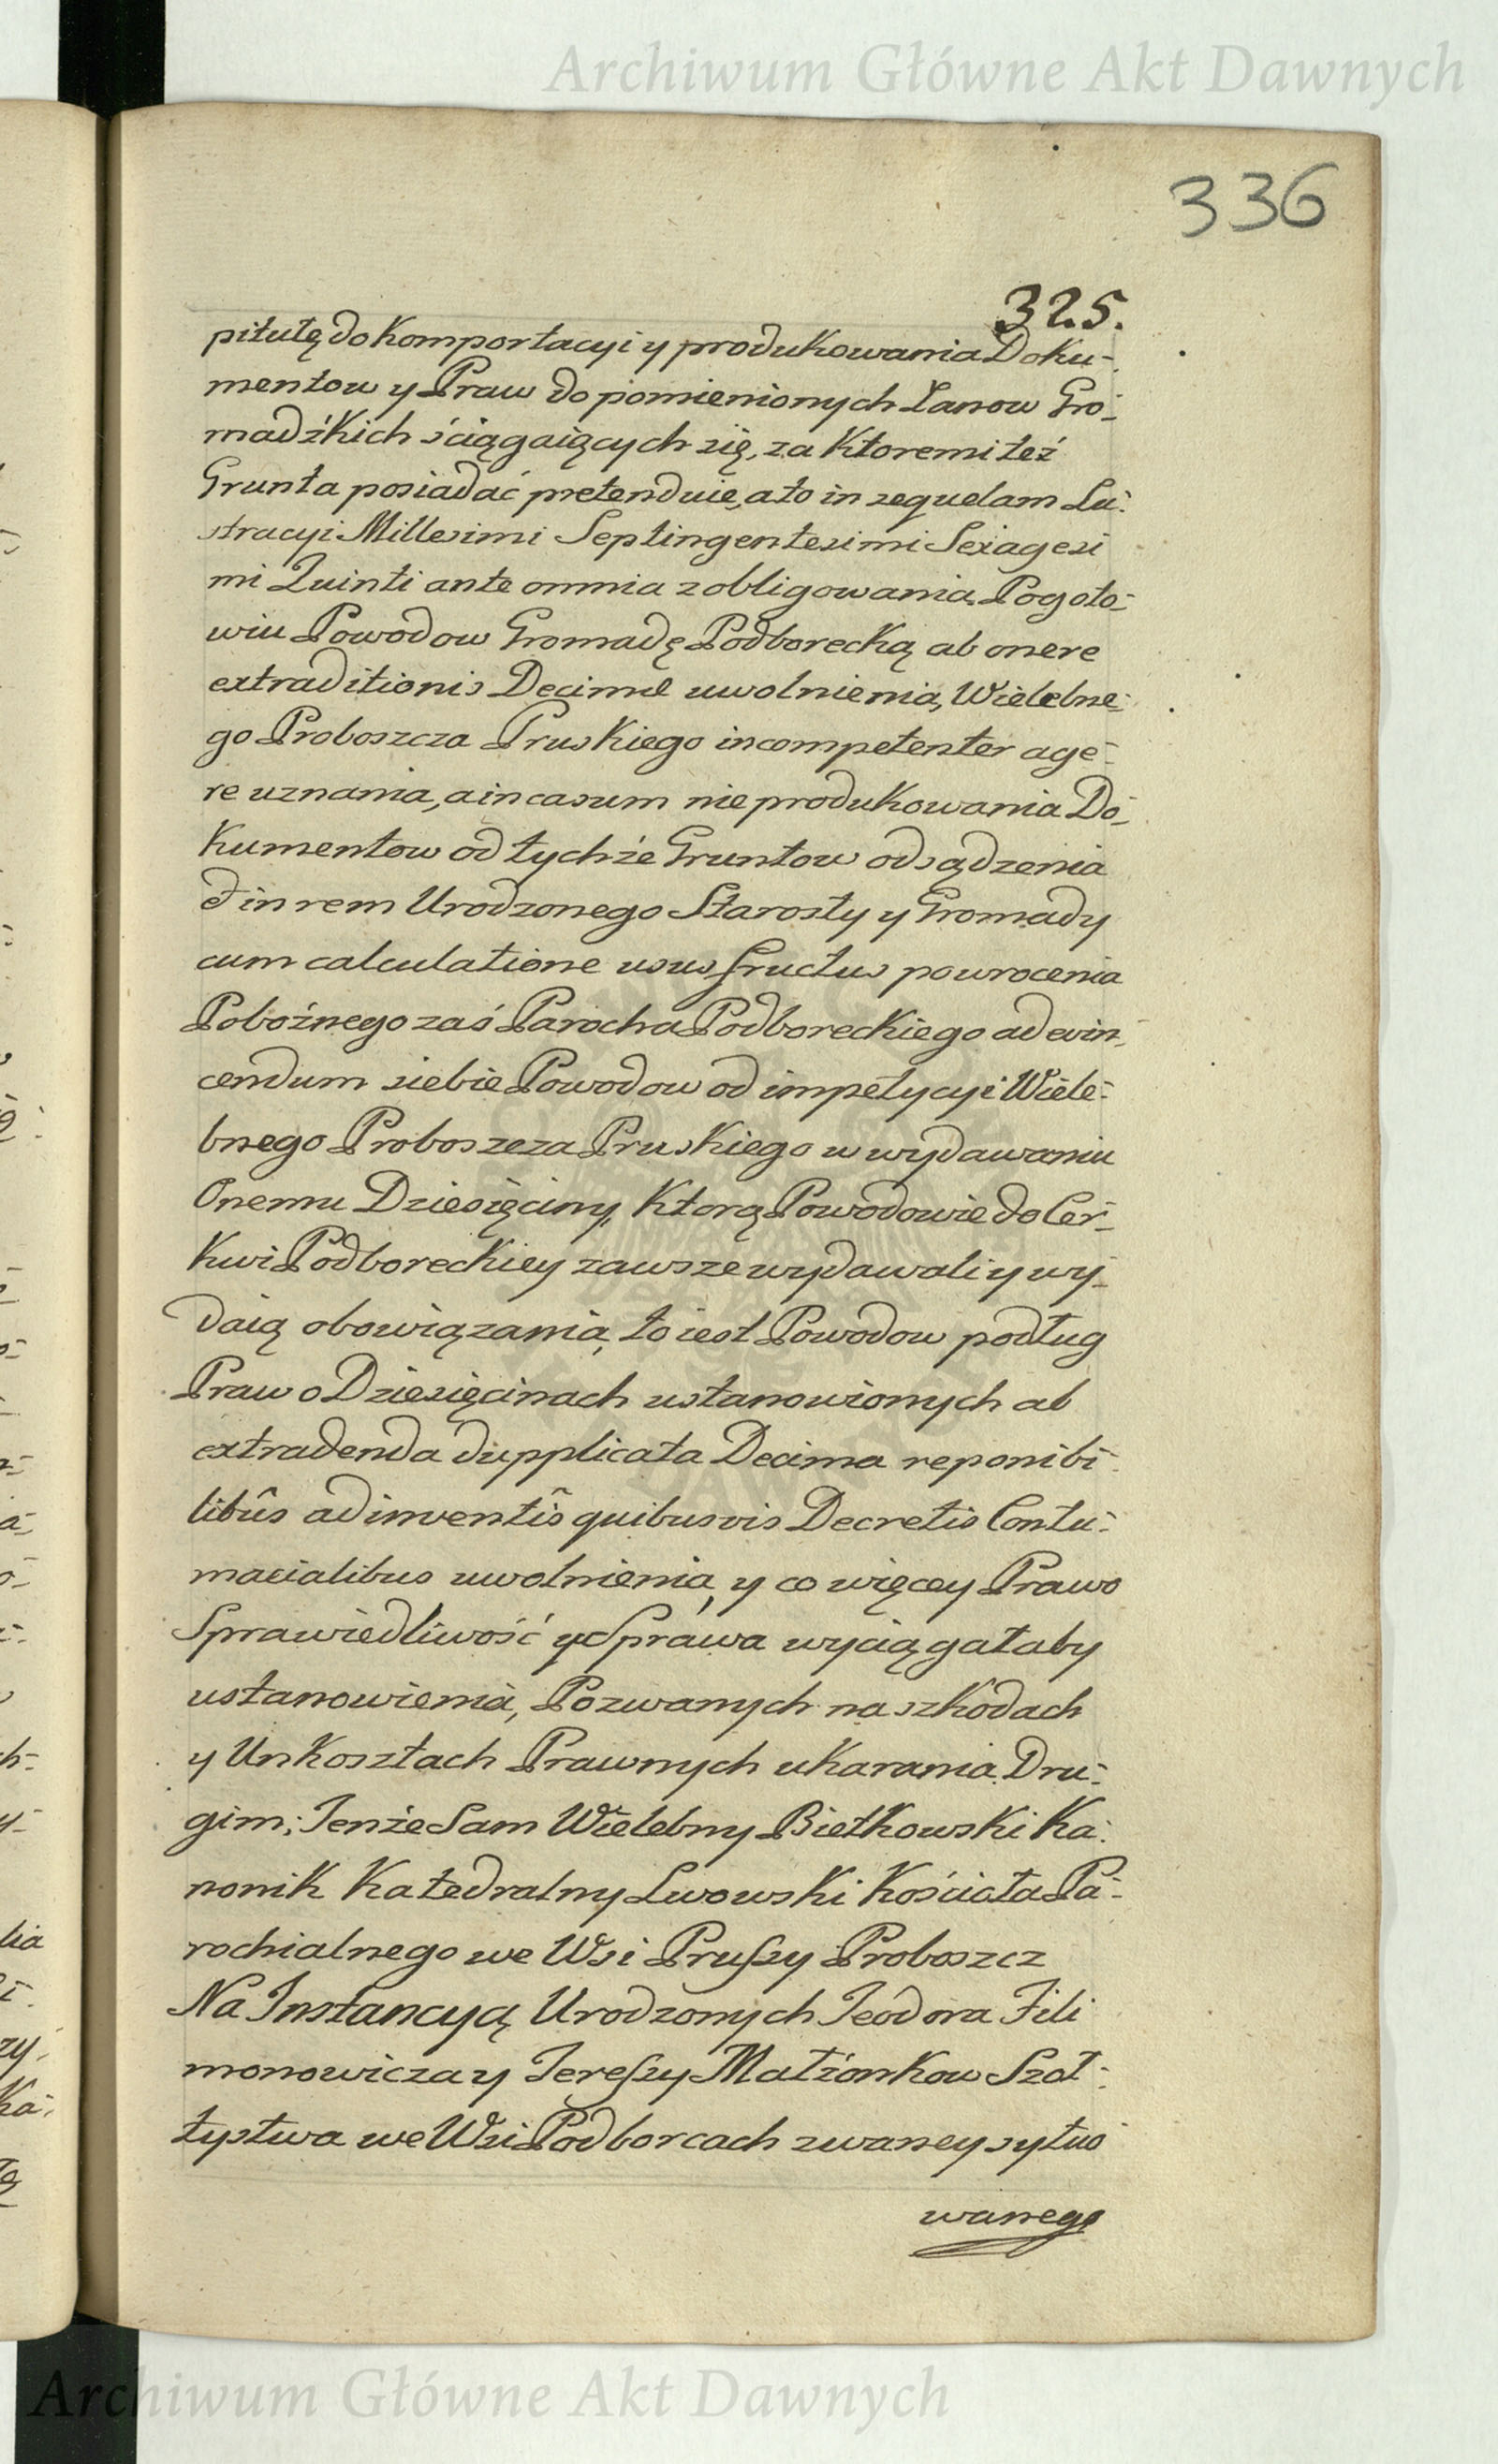 Archiwum Główne Akt Dawnych
336
325.
pitułę do Komportacyi y produkowania Doku-
mentow y Praw do pomienionych Łanow Gro-
madźkich ściągaiących się, za Ktoremi też
Grunta posiadać pretenduie, a to in sequelam Lu-
stracyi Millesimi Septingentesimi Sexagesi
mi Quinti ante omnia zobligowania. Pogoto-
wiu Powodow Gromadę Podborecką ab onere
extraditionis Decimæ uwolnienia, Wielebne-
go Proboszcza Pruskiego incompetenter age-
re uznania, a in casum nie produkowania Do-
Kumentow od tychże Gruntow odsądzenia
& in rem Urodzonego Starosty y Gromady
cum calculatione usus fructus powrocenia
Pobożnego zaś Parocha Podboreckiego ad evin-
cendum siebie Powodow od impetycyi Wiele-
bnego Proboszcza Pruskiego w wydawaniu
Onemu Dziesięciny, Ktorą Powodowie do Cer-
Kwi Podboreckiey zawsze wydawali y wy-
daią obowiązania, to iest Powodow podług
Praw o Dziesięcinach ustanowionych ab
extradenda dupplicata Decima reponibi
libûs adinventis quibusvis Decretis Contu-
macialibus uwolnienia, y co więcey Prawo
Sprawiedliwość y Sprawa wyciągałaby
ustanowienia, Pozwanych na szkodach
y Unkosztach Prawnych ukarania. Dru-
gim; Tenże Sam Wielebny Biełkowski Ka-
nonik Katedralny Lwowski Kościoła Pa-
rochialnego we Wsi Prussy Proboszcz
Na Instancyą Urodzonych Teodora Fili
monowicza y Teressy Małżonkow Szoł-
tystwa we Wsi Podborcach zwaney sytuo
wanego
Archiwum Główne Akt Dawnych